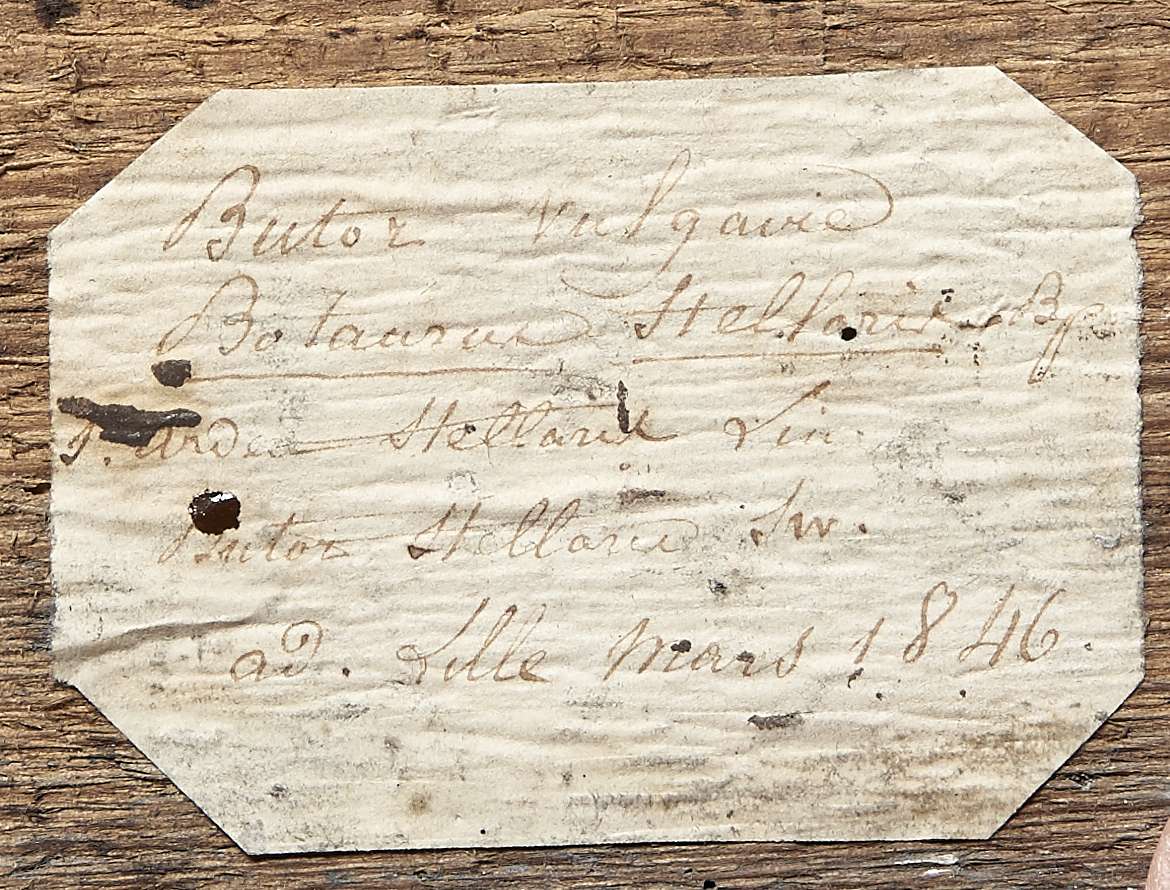 Butor vulgaire
Botaurus Stellaris Bp.
1. Ardea Stellaris Lin.
Butor Stellaris Sw.
ad. Lille mars 1846.